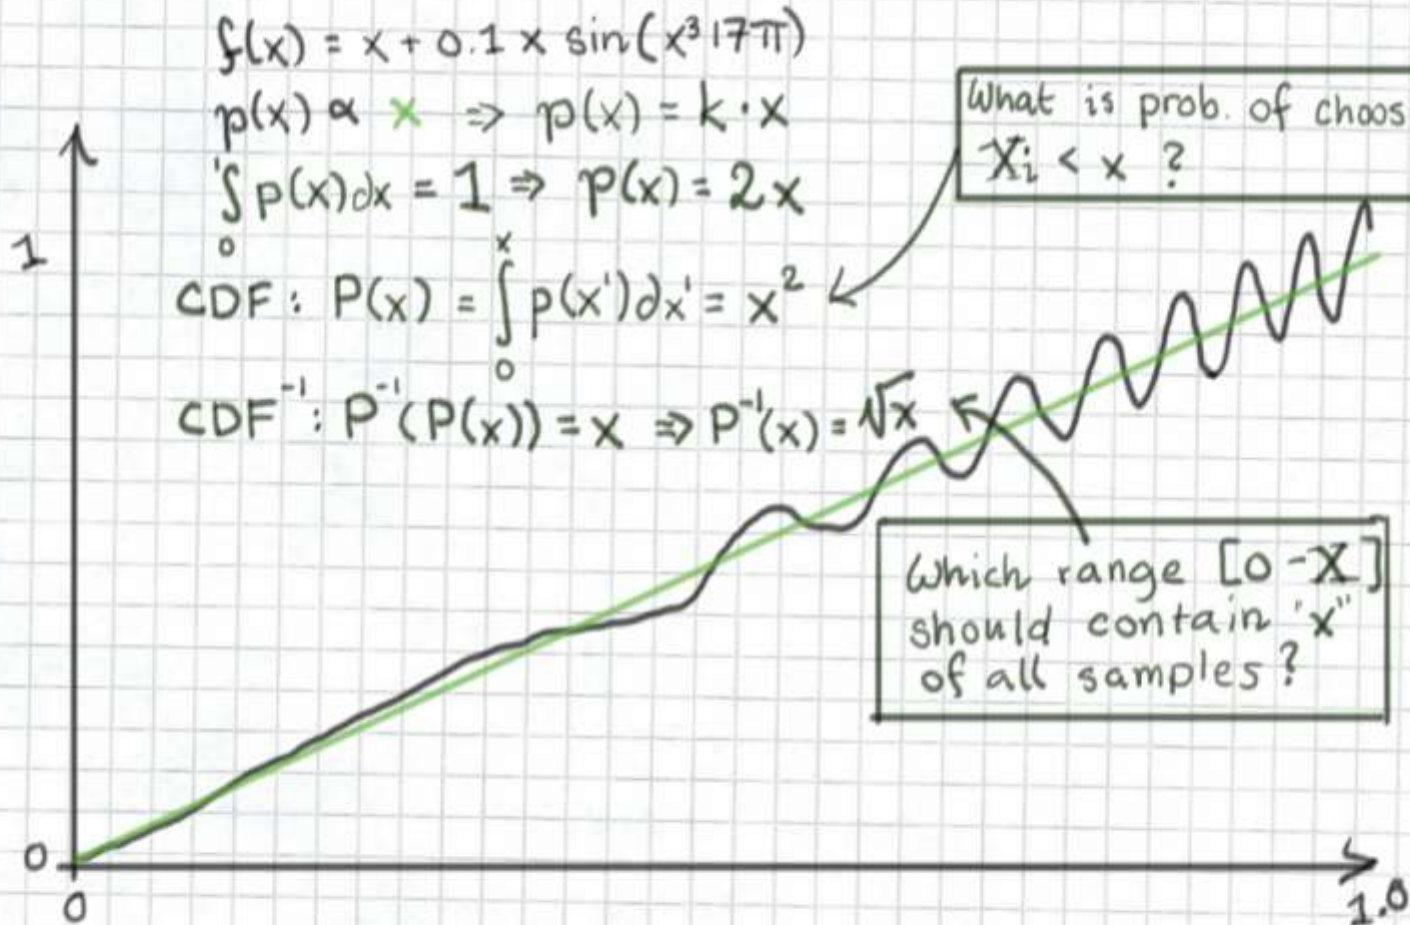 f(x) = x + 0.1 x sin(x³17π)
p(x) ∝ x ⇒ p(x) = k·x
∫₀¹ p(x)dx = 1 ⇒ p(x) = 2x
CDF: P(x) = ∫₀ˣ p(x')dx' = x²
CDF⁻¹: P⁻¹(P(x)) = x ⇒ P⁻¹(x) = √x
What is prob. of choos
Xi < x ?
Which range [0-X]
should contain "x"
of all samples?
1
0
0
1.0